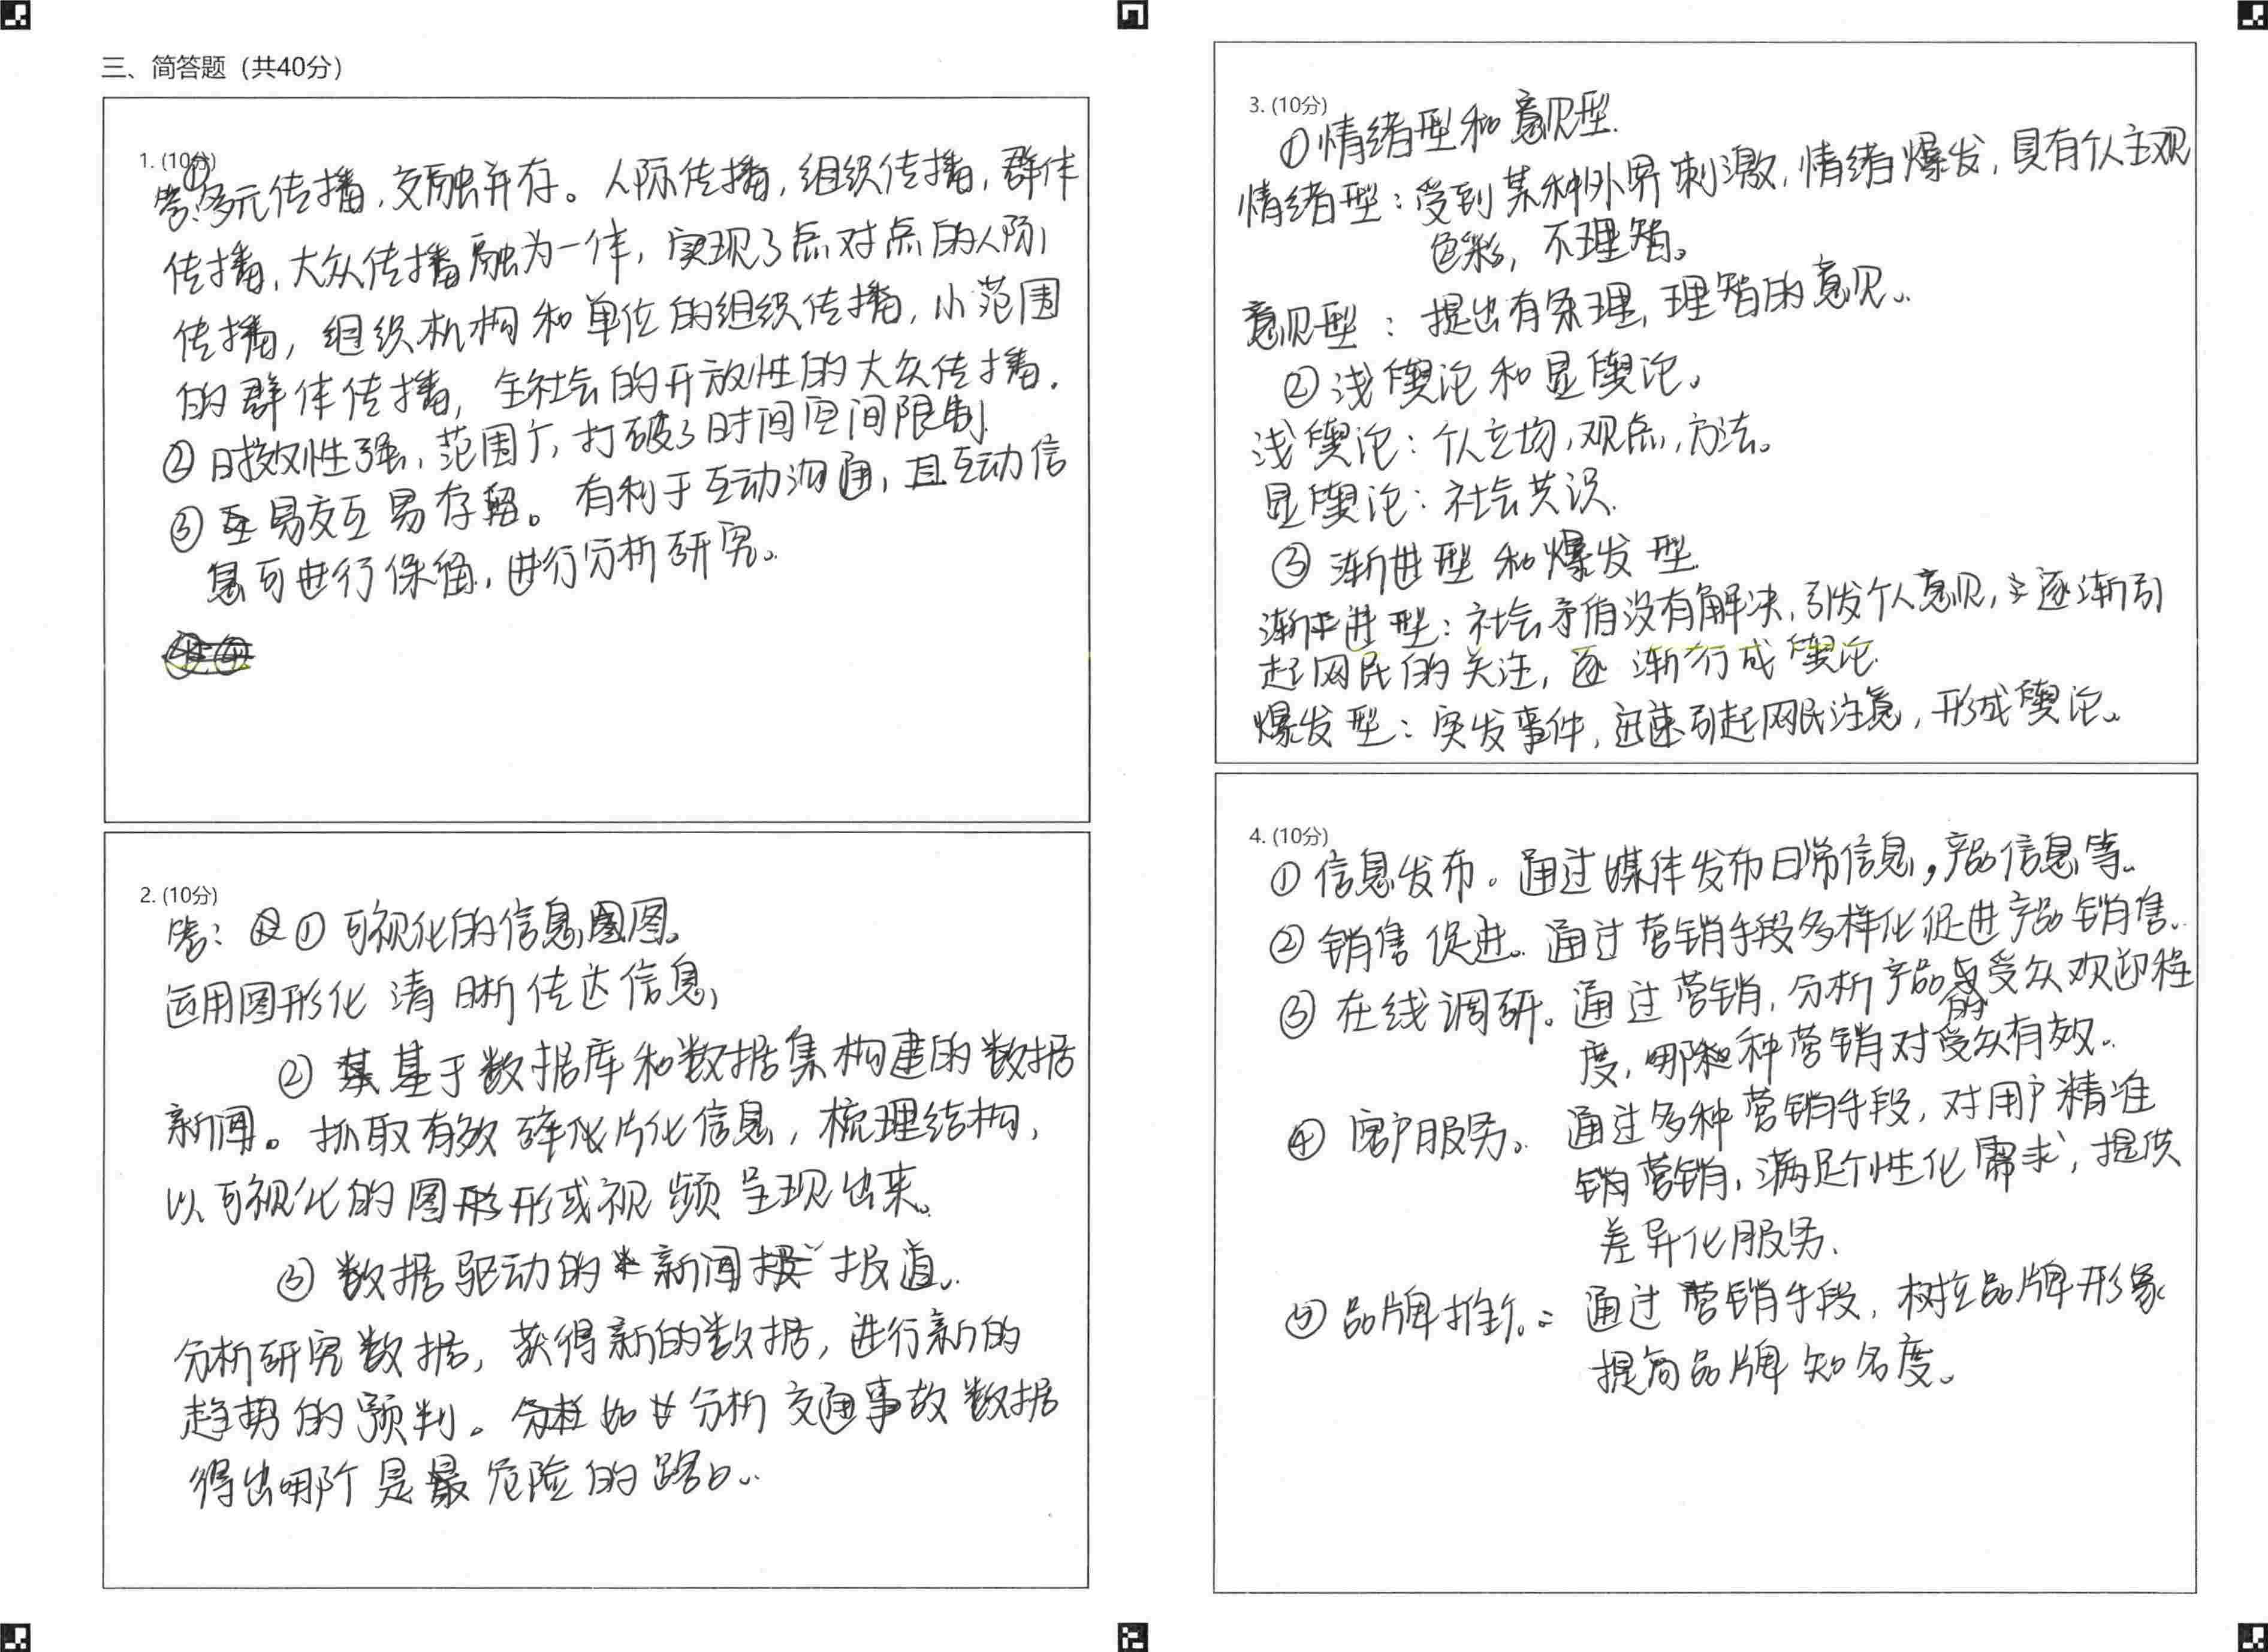 三、简答题（共40分）
1. (10分)
答：①多元传播，交融并存。人际传播，组织传播，群体
传播，大众传播融为一体，实现了点对点的人际
传播，组织机构和单位的组织传播，小范围
的群体传播，全社会的开放性的大众传播。
② 时效性强，范围广，打破了时间空间限制
③ 易交互易存留。有利于互动沟通，且互动信
息可进行保留，进行分析研究。
2. (10分)
答：①可视化的信息图。
运用图形化清晰传达信息，
② 基于数据库和数据集构建的数据
新闻。抓取有效碎片化信息，梳理结构，
以可视化的图形或视频呈现出来。
③ 数据驱动的新闻报道。
分析研究数据，获得新的数据，进行新的
趋势的预判。如分析交通事故数据
得出哪个是最危险的路口。
3. (10分)
①情绪型和意见型.
情绪型：受到某种外界刺激，情绪爆发，具有个人主观
色彩，不理智。
意见型：提出有条理，理智的意见。
②浅舆论和显舆论。
浅舆论：个人立场，观点，方法。
显舆论：社会共识.
③ 渐进型和爆发型.
渐进型：社会矛盾没有解决，引发个人意见，逐渐引
起网民的关注，逐渐形成舆论.
爆发型：突发事件，迅速引起网民注意，形成舆论。
4. (10分)
① 信息发布。通过媒体发布日常信息，产品信息等。
② 销售促进。通过营销手段多样化促进产品销售。
③ 在线调研。通过营销，分析产品的受众欢迎程
度，哪种营销对受众有效。
④ 客户服务。通过多种营销手段，对用户精准
营销，满足个性化需求，提供
差异化服务.
⑤ 品牌推广：通过营销手段，树立品牌形象
提高品牌知名度。